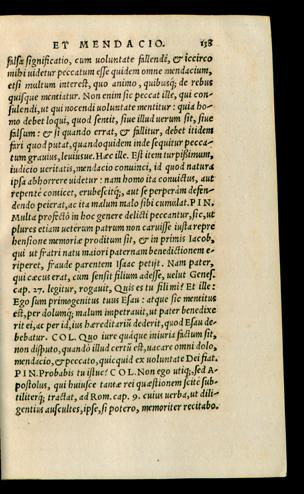 ET MENDACIO. 138
falsæ significatio, cum voluntate fallendi, & iccirco
mihi videtur peccatum esse quidem omne mendacium,
etsi multum interest, quo animo, quibusq; de rebus
quisque mentiatur. Non enim sic peccat ille, qui con-
sulendi, ut qui nocendi voluntate mentitur: quia ho-
mo debet loqui, quod sentit, siue illud verum sit, siue
falsum: & si quando errat, & fallitur, debet itidem
fari quod putat, quandoquidem inde sequitur pecca-
tum grauius, leuiusue. Hæc ille. Est item turpißimum,
iudicio veritatis, mendacio conuinci, id quod natura
ipsa abhorrere videtur: nam homo ita conuictus, aut
repente conuicet, erubescitq;, aut se perperàm defen-
dendo peierat, ac ita malum malo sibi cumulat. PIN.
Multa profectò in hoc genere delicti peccantur, sic, ut
plures etiam veterum patrum non caruisse iusta repre
hensione memoriæ proditum sit, & in primis Iacob,
qui ut fratri natu maiori paternam benedictionem e-
riperet, fraude parentem Isaac petijt. Nam pater,
qui cæcus erat, cum sensit filium adesse, uelut Genes.
cap. 27. legitur, rogauit, Quis es tu fili mi? Et ille:
Ego sum primogenitus tuus Esau: atque sic mentitus
est, per dolumq; malum impetrauit, ut pater benedixe
rit ei, ac per id, ius hæreditariũ dederit, quod Esau de-
bebatur. COL. Quo iure quáque iniuria factum sit,
non disputo, quando illud certũ est, uacare omni dolo,
mendacio, & peccato, quicquid ex voluntate Dei fiat.
PIN. Probabis tu istuc? COL. Non ego utiq;, sed A-
postolus, qui huiusce tantæ rei quæstionem scitè sub-
tiliterq; tractat, ad Rom. cap. 9. cuius verba, ut dili-
gentius auscultes, ipse, si potero, memoriter recitabo.